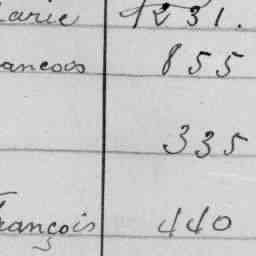 arie 1231.
ancois 855
335
François 440